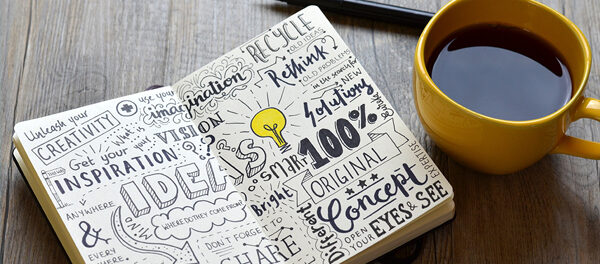 Unleash your
CREATIVITY
use your
imagination
What is
your
VISION
?
Get your
INSPIRATION
ANYWHERE
&
EVERY
WHERE
IDEAS
WHERE DO THEY COME FROM?
DON'T FORGET TO
SHARE
RECYCLE
OLD IDEAS
Rethink
OLD PROBLEMS
in the search of
NEW
Solutions
Smart
bright
100%
ORIGINAL
Different
Concept
OPEN
YOUR
EYES & SEE
EXPERTISE